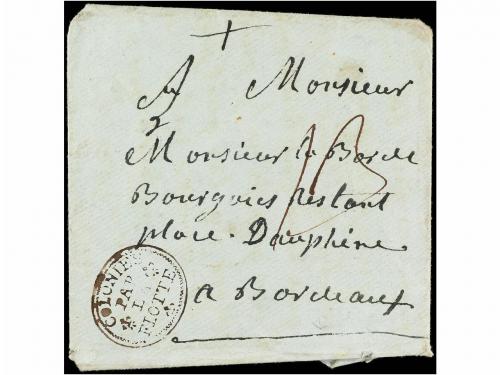 A Monsieur
2
Monsieur la Borde
Bourgoies Restant
place Dauphène
a Bordeaux
13
COLONIES
PAR
LA
FLOTTE